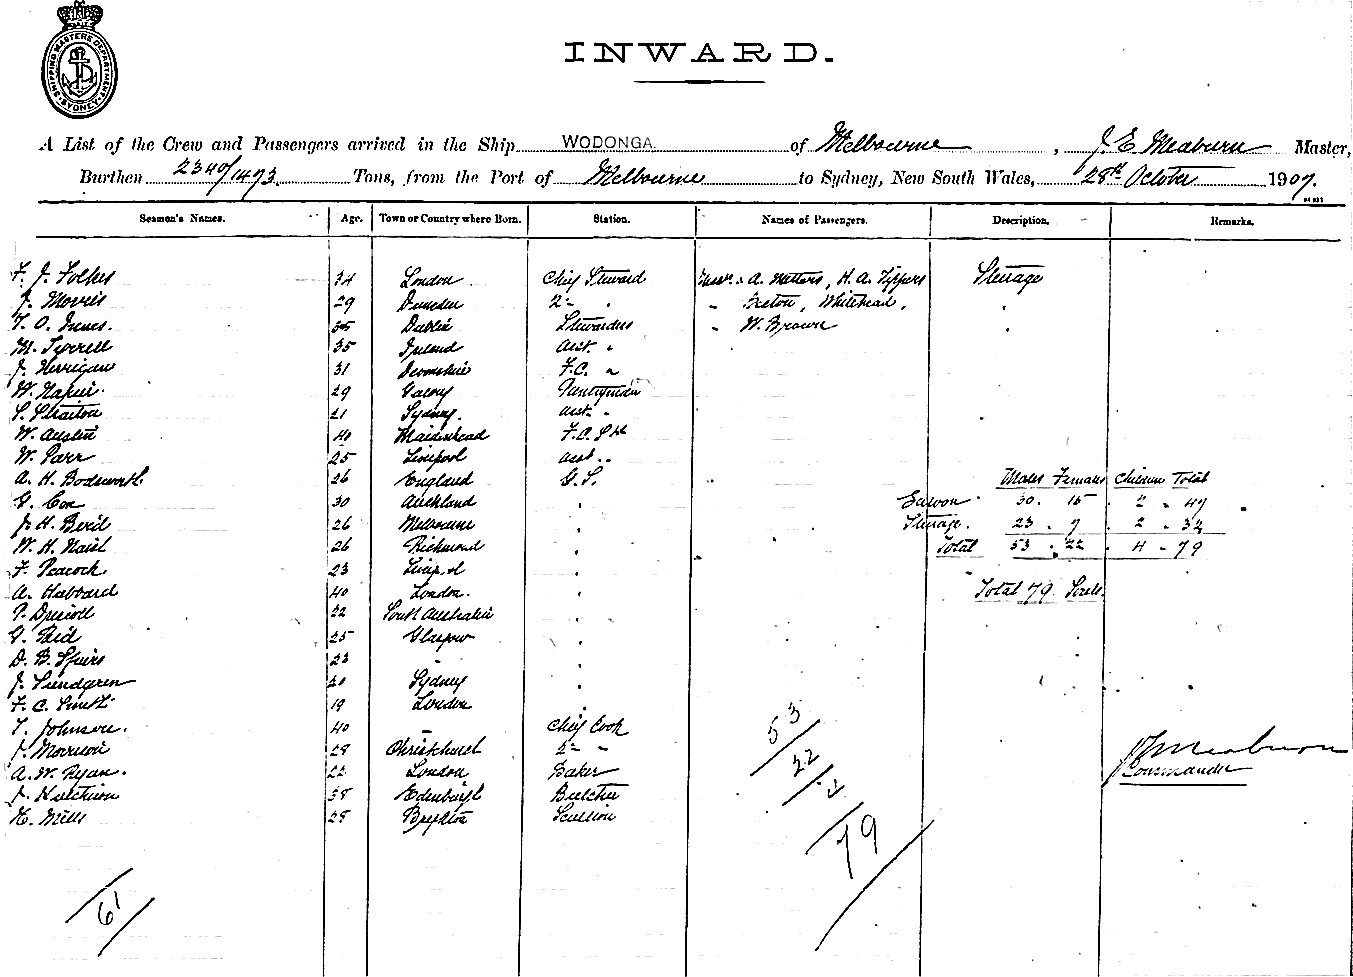 SHIPPING MASTERS DEPARTMENT SYDNEY
INWARD.
A List of the Crew and Passengers arrived in the Ship WODONGA of Melbourne, J. E. Meaburn Master,
Burthen 2340/1473 Tons, from the Port of Melbourne to Sydney, New South Wales, 28th October 1907.
Seamen's Names. Age. Town or Country where Born. Station. Names of Passengers. Description. Remarks.
34 London Chief Steward A. H. A. Steerage
J. Morris 29 Dunedin 2" " Whitehead,
T. O. 35 Dublin Stewardess " W. Brown
M. Tyrrell 35 Ireland Asst. "
J. 31 Devonshire F.C. "
W. Napier 29 Pantryman
S. Stratton 21 Sydney. Asst. "
W. Austin 40 Maidenhead F.C.
W. Parr 25 Liverpool Asst. "
A. H. Bodsworth 26 England G.S. Males Females Children Total
G. Cox 30 Auckland Saloon 30. 15 . 2 . 47
J. H. 26 Melbourne Steerage. 23 . 7 . 2 . 32
W. H. 26 Richmond Total 53 . 22 . 4 - 79
F. Peacock. 23 Liverpool
A. Hubbard 40 London. Total 79 Souls
P. Driscoll 22 South Australia
G. Reid 25 Glasgow
D. B. Speirs 23 "
J. Sundgren 20 Sydney
F. C. Smith 19 London
T. Johnson. 40 " Chief Cook 53
J. Morrison 28 Christchurch 2" " 22
A. W. Ryan. 22 London Baker 4
J. Hutchison 38 Edinburgh Butcher
H. Mills 28 Brighton Scullion
79
J E Meaburn
Commander
61